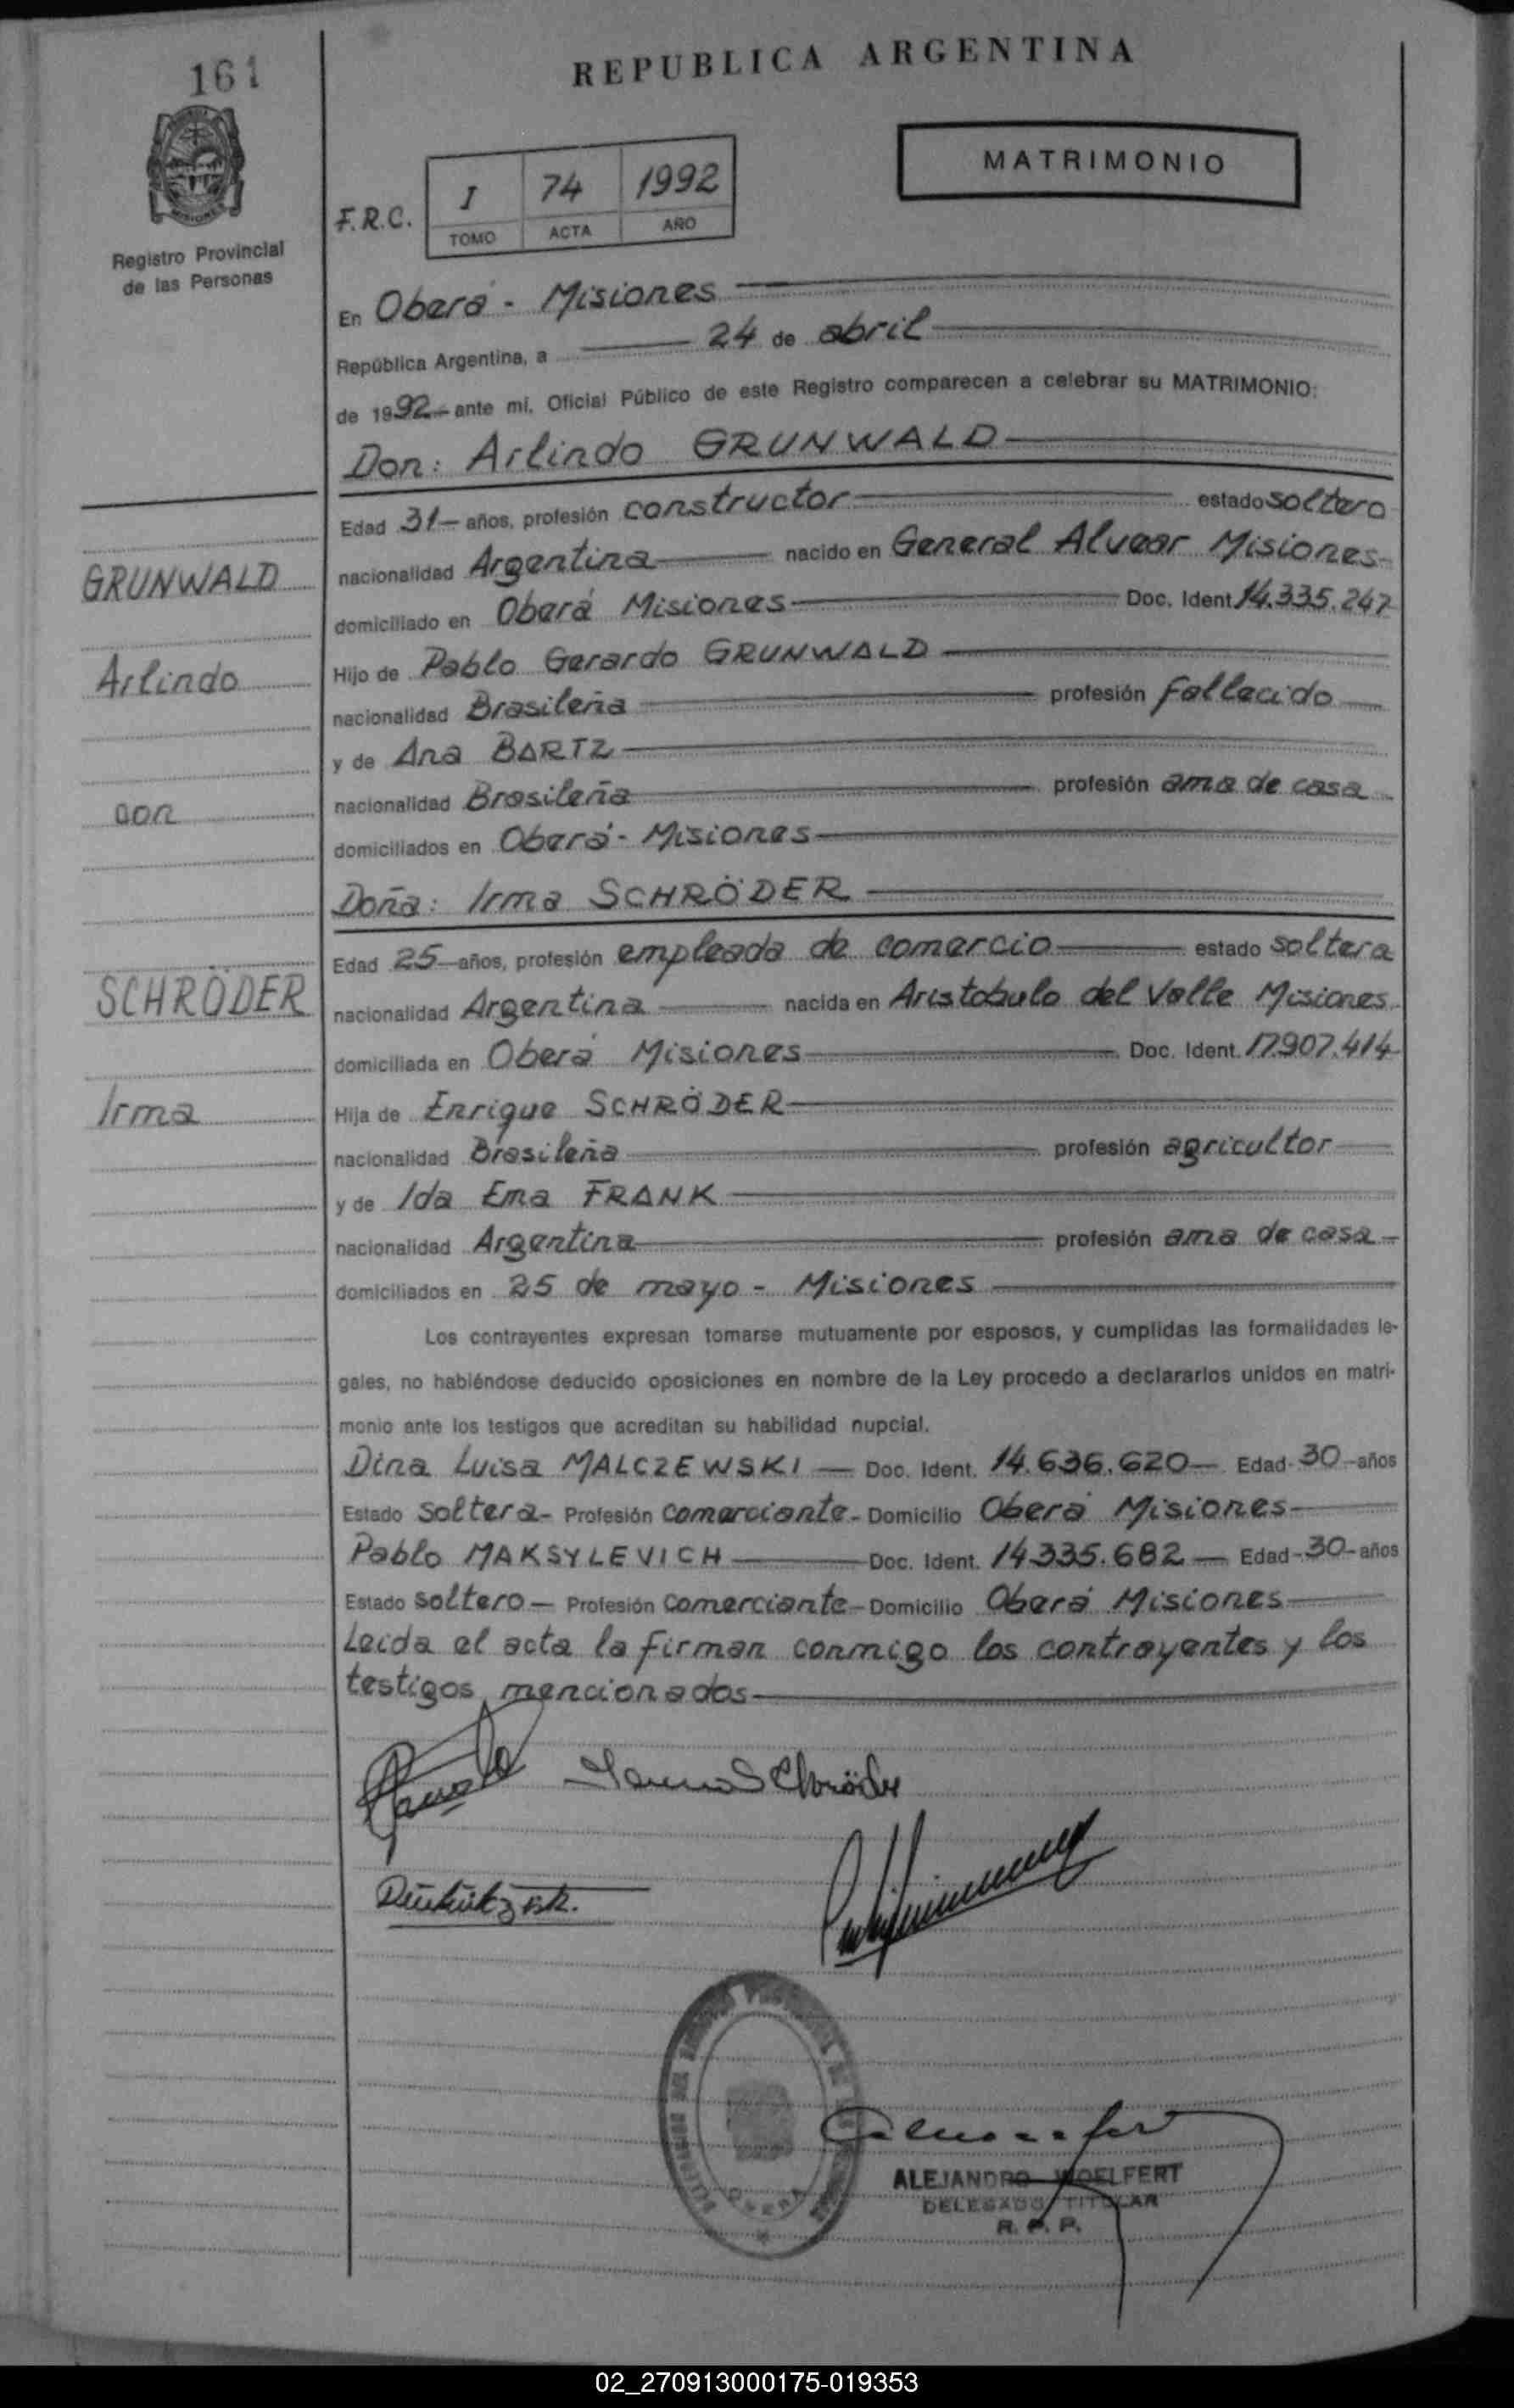 161
REPUBLICA ARGENTINA
MATRIMONIO
Registro Provincial
de las Personas
F.R.C.
I 74 1992
TOMO ACTA AÑO
En Oberá - Misiones
República Argentina, a 24 de abril
de 1992 ante mi, Oficial Público de este Registro comparecen a celebrar su MATRIMONIO:
Don: Arlindo GRUNWALD
Edad 31 años, profesión constructor estado soltero
nacionalidad Argentina nacido en General Alvear Misiones
domiciliado en Oberá Misiones Doc. Ident. 14.335.247
Hijo de Pablo Gerardo GRUNWALD
nacionalidad Brasileña profesión fallecido
y de Ana BARTZ
nacionalidad Brasileña profesión ama de casa
domiciliados en Oberá - Misiones
Doña: Irma SCHRÖDER
Edad 25 años, profesión empleada de comercio estado soltera
nacionalidad Argentina nacida en Aristobulo del Valle Misiones
domiciliada en Oberá Misiones Doc. Ident. 17.907.414
Hija de Enrique SCHRÖDER
nacionalidad Brasileña profesión agricultor
y de Ida Ema FRANK
nacionalidad Argentina profesión ama de casa
domiciliados en 25 de mayo - Misiones
Los contrayentes expresan tomarse mutuamente por esposos, y cumplidas las formalidades le-
gales, no habiéndose deducido oposiciones en nombre de la Ley procedo a declararlos unidos en matri-
monio ante los testigos que acreditan su habilidad nupcial.
Dina Luisa MALCZEWSKI Doc. Ident. 14.636.620 Edad 30 años
Estado soltera - Profesión comerciante - Domicilio Oberá Misiones
Pablo MAKSYLEVICH Doc. Ident. 14335.682 Edad 30 años
Estado soltero Profesión comerciante - Domicilio Oberá Misiones
Leída el acta la firman conmigo los contrayentes y los
testigos mencionados
GRUNWALD
Arlindo
con
SCHRÖDER
Irma
Irma Schröder
OBERA
ALEJANDRO WOELFERT
DELEGADO TITULAR
R. P. P.
02_270913000175-019353